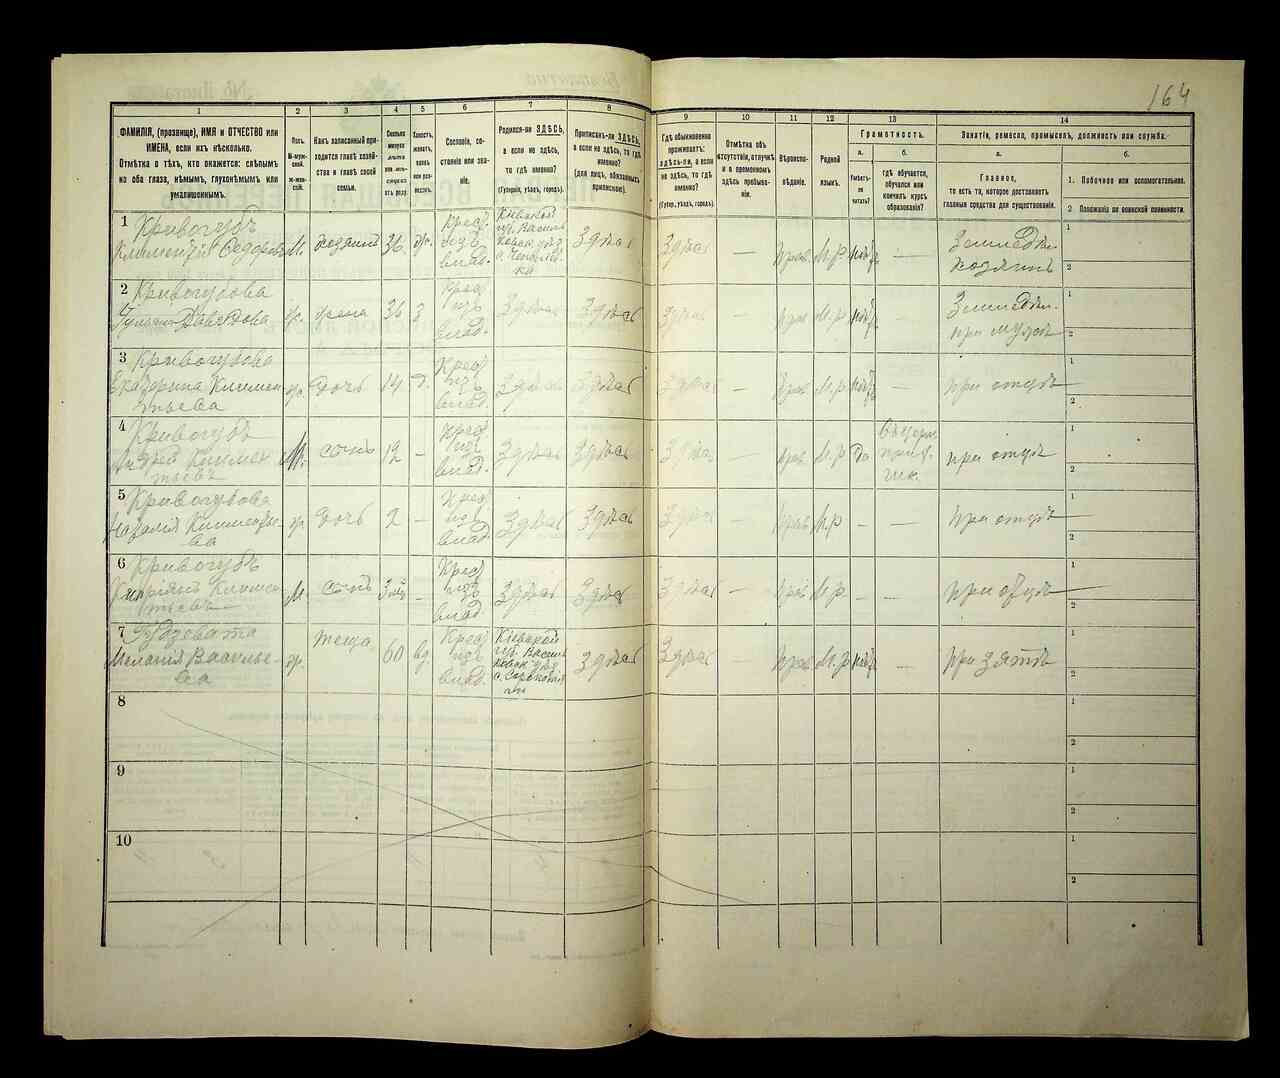 164
1 2 3 4 5 6 7 8 9 10 11 12 13 14
ФАМИЛІЯ, (прозвище), ИМЯ и ОТЧЕСТВО или
ИМЕНА, если ихъ нѣсколько.
Отмѣтка о тѣхъ, кто окажется: слѣпымъ
на оба глаза, нѣмымъ, глухонѣмымъ или
умалишеннымъ.
Полъ.
М-мужской.
Ж-женскій.
Какъ записанный приходится главѣ хозяйства и главѣ своей семьи.
Сколько минуло лѣтъ или мѣсяцевъ отъ роду.
Холостъ, женатъ, вдовъ или разведенъ.
Сословіе, состояніе или званіе.
Родился-ли ЗДѢСЬ,
а если не здѣсь,
то гдѣ именно?
(Губернія, уѣздъ, городъ).
Приписанъ-ли ЗДѢСЬ,
а если не здѣсь, то гдѣ
именно?
(Для лицъ, обязанныхъ
припиской).
Гдѣ обыкновенно
проживаетъ:
здѣсь-ли, а если
не здѣсь, то гдѣ
именно?
(Губер., уѣздъ, городъ).
Отмѣтка объ
отсутствіи, отлучкѣ
и о временномъ
здѣсь пребываніи.
Вѣроисповѣданіе.
Родной
языкъ.
Грамотность.
а.
Умѣетъ-ли
читать?
б.
гдѣ обучается,
обучался или
кончилъ курсъ
образованія?
Занятіе, ремесло, промыселъ, должность или служба.
а.
Главное,
то есть то, которое доставляетъ
главныя средства для существованія.
б.
1. Побочное или вспомогательное.
2 Положеніе по воинской повинности.
1 Кривогубъ
Климентій Федоровъ М. хозяинъ 36. ж. Крест. изъ влад. Кіевской губ. Васильковск. уѣзд. Здѣсь Здѣсь — Прав. М.Р. нѣтъ — Земледѣл. хозяинъ 1 2
2 Кривогубова
Давидова ж. жена 36 з Крест. изъ влад. Здѣсь Здѣсь Здѣсь — Прав М.Р нѣтъ — Земледѣл. при мужѣ 1 2
3 Кривогубова
Екатерина Климентьева ж. дочь 14 д. Крест. изъ влад. Здѣсь Здѣсь Здѣсь — Прав М.Р нѣтъ — при отцѣ 1 2
4 Кривогубъ
Андрей Климентьевъ М. сынъ 12 — Крест. изъ влад. Здѣсь Здѣсь Здѣсь — Прав М.Р да при отцѣ 1 2
5 Кривогубова
Наталія Климентьева ж. дочь 2 — Крест. изъ влад. Здѣсь Здѣсь Здѣсь — Прав М.Р — — При отцѣ 1 2
6 Кривогубъ
Климентьевъ М. сынъ Крест. изъ влад. Здѣсь Здѣсь Здѣсь — Прав М.Р. — — При отцѣ 1 2
7
Меланія Васильева ж. теща 60 вд. Крест. изъ влад. Кіевской губ. Васильковск. уѣзд. Здѣсь Здѣсь — Прав М.Р нѣтъ — При зятѣ 1 2
8 1 2
9 1 2
10 1 2